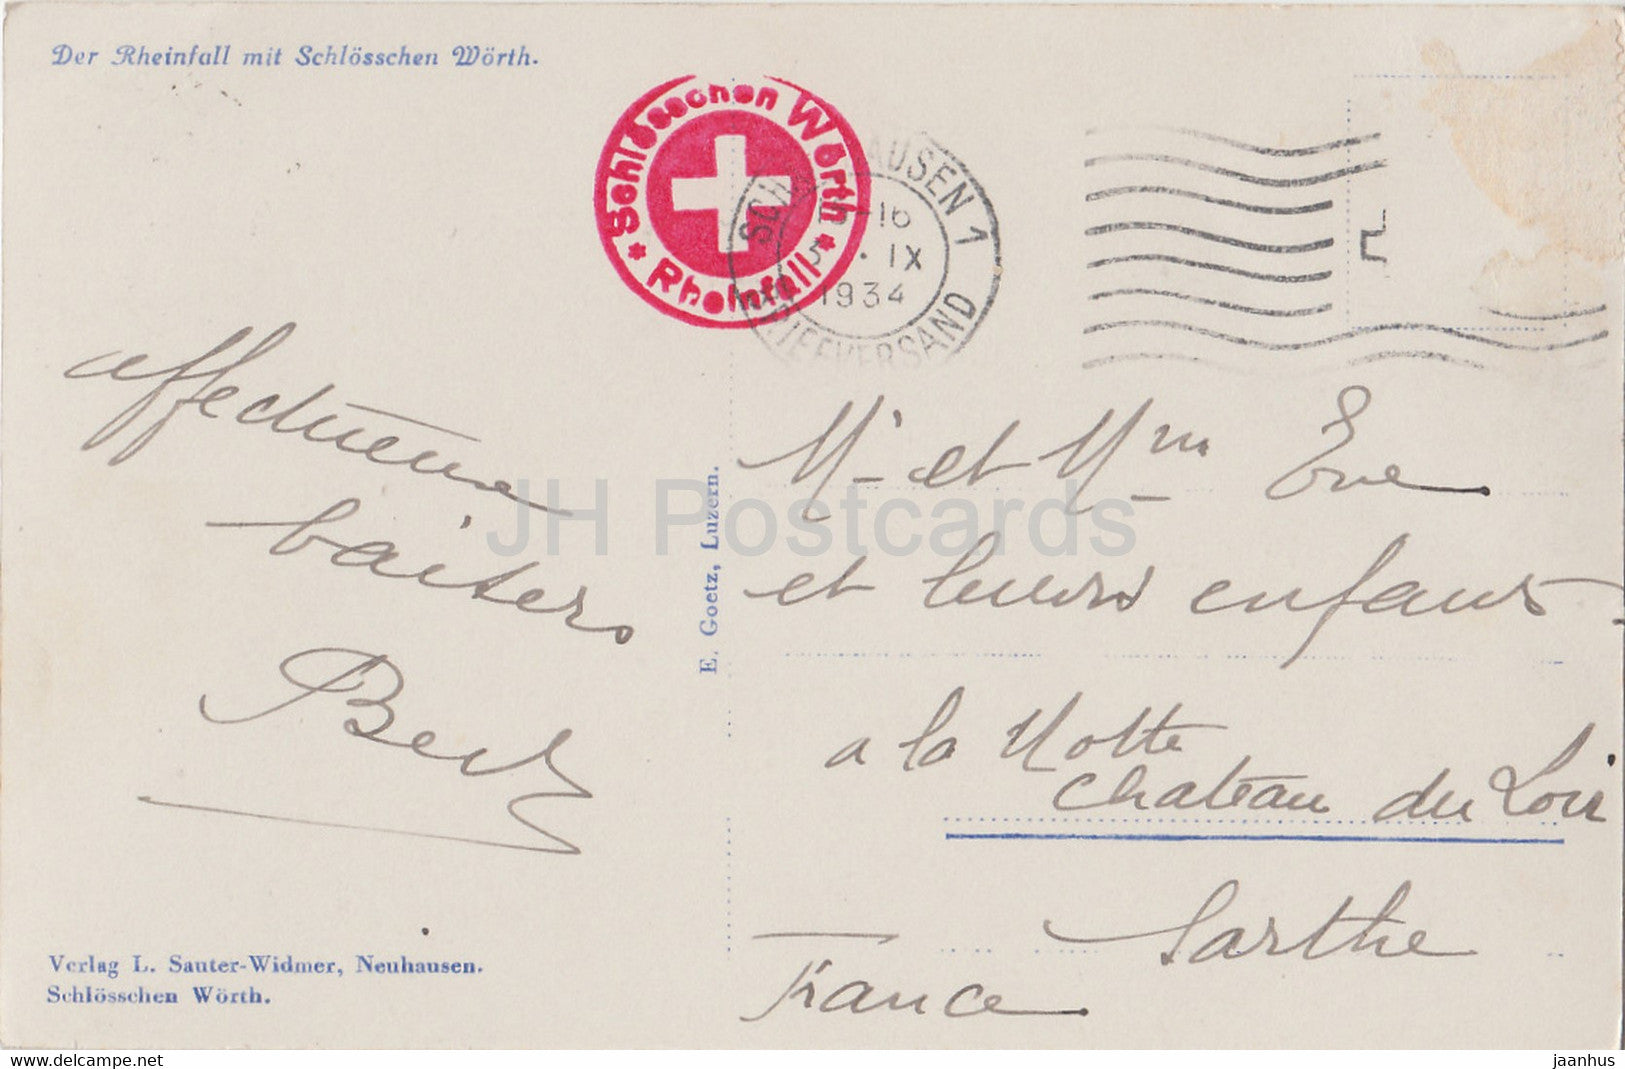 Der Rheinfall mit Schlösschen Wörth.
Schlösschen Wörth
* Rheinfall *
SCHAUSEN 1
-16
IX
1934
BRIEFVERSAND
affectueux
baisers
E. Goetz, Luzern.
JH Postcards
Mr et Mme Eve
et leurs enfants
a la Motte
chateau du Loir
Sarthe
France
Verlag L. Sauter-Widmer, Neuhausen.
Schlösschen Wörth.
jaanhus
https://www.delcampe.net